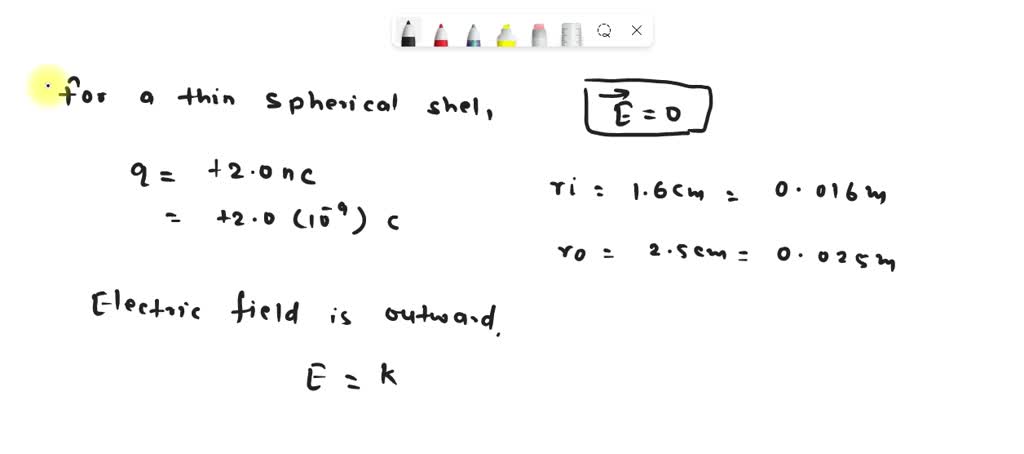 for a thin spherical shel,
E = 0
q = +2.0 nc
= +2.0 (10⁻⁹) c
ri = 1.6cm = 0.016m
ro = 2.5cm = 0.025m
Electric field is outward.
E = k